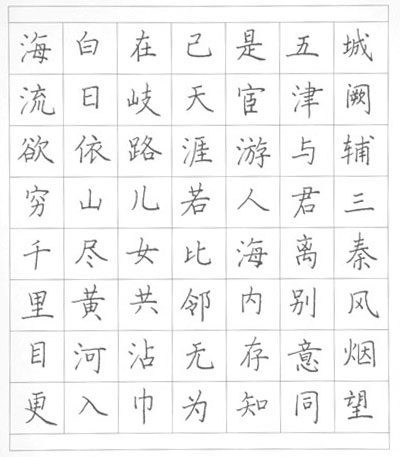 城阙辅三秦风烟望
五津与君离别意同
是宦游人海内存知
己天涯若比邻无为
在岐路儿女共沾巾
白日依山尽黄河入
海流欲穷千里目更